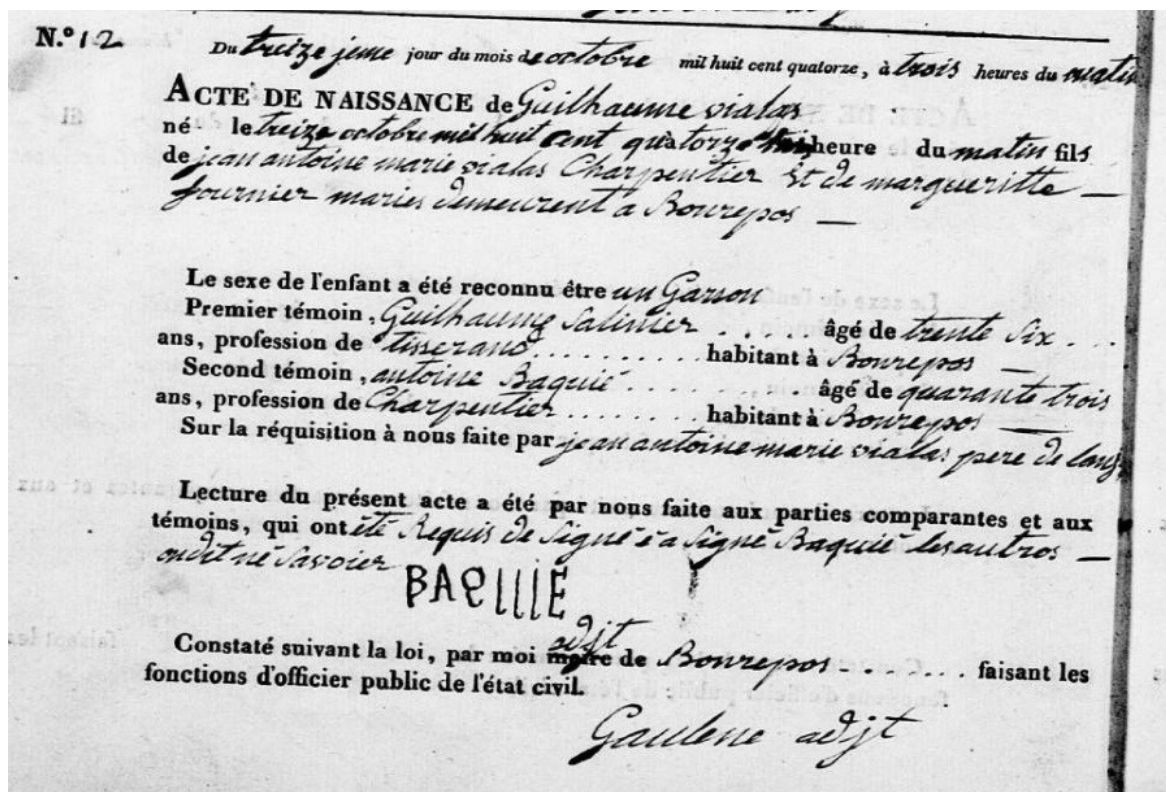 N.º 12
Du treize jeme jour du mois de octobre mil huit cent quatorze, à trois heures du matin
ACTE DE NAISSANCE de Guilhaume vialas
né le treize octobre mil huit cent quatorze heure du matin fils
de jean antoine marie vialas Charpentier Et de margueritte —
fournier maries demeurent a Bonrepos —
Le sexe de l'enfant a été reconnu être un Garson
Premier témoin, Guilhaume Salinier . . . . . âgé de trente Six . . .
ans, profession de tisserand . . . . . . . . . . habitant à Bonrepos —
Second témoin, antoine Baquié . . . . . . . . . . âgé de quarante trois
ans, profession de Charpentier . . . . . . . habitant à Bonrepos —
Sur la réquisition à nous faite par jean antoine marie vialas pere de
Lecture du présent acte a été par nous faite aux parties comparantes et aux
témoins, qui ont été Requis de Signé é a Signé Baquié les autres —
ondit né Savoier
BAQUIE
adjt
Constaté suivant la loi, par moi maire de Bonrepos . . . . . . . faisant les
fonctions d'officier public de l'état civil.
Gaulene adjt